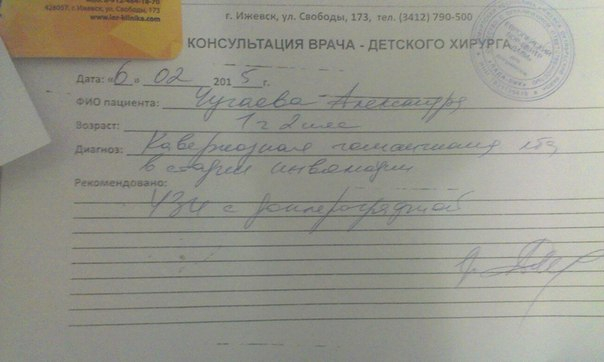 426007, г. Ижевск, ул. Свободы, 173
www.lor-klinika.com
г. Ижевск, ул. Свободы, 173, тел. (3412) 790-500
КОНСУЛЬТАЦИЯ ВРАЧА - ДЕТСКОГО ХИРУРГА
Дата: «6» 02 2015г.
ФИО пациента: Чугаева Александра
Возраст: 1 г 2 мес
Диагноз: Кавернозная гемангиома лба
в стадии инволюции
Рекомендовано:
УЗИ с доплерографией